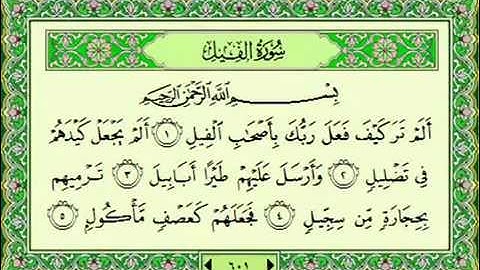 سُورَةُ الْفِيلِ
بِسْمِ اللَّهِ الرَّحْمَٰنِ الرَّحِيمِ
أَلَمْ تَرَ كَيْفَ فَعَلَ رَبُّكَ بِأَصْحَابِ الْفِيلِ ١ أَلَمْ يَجْعَلْ كَيْدَهُمْ
فِي تَضْلِيلٍ ٢ وَأَرْسَلَ عَلَيْهِمْ طَيْرًا أَبَابِيلَ ٣ تَرْمِيهِم
بِحِجَارَةٍ مِّن سِجِّيلٍ ٤ فَجَعَلَهُمْ كَعَصْفٍ مَّأْكُولٍ ٥
٦٠١